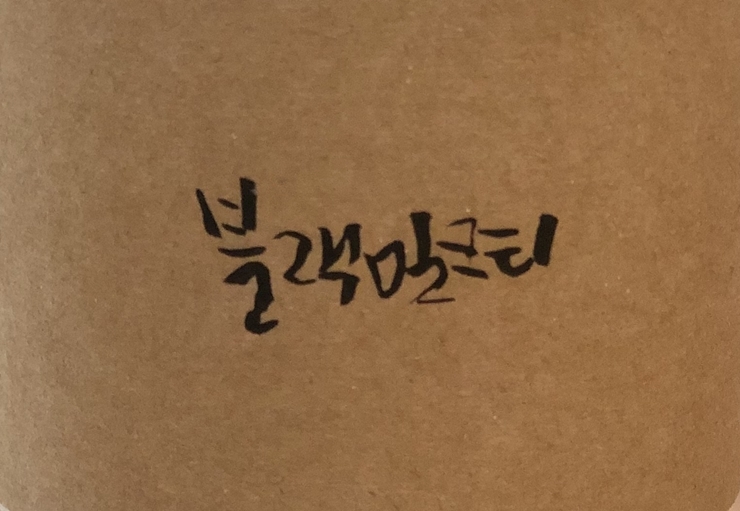 블랙밀크티